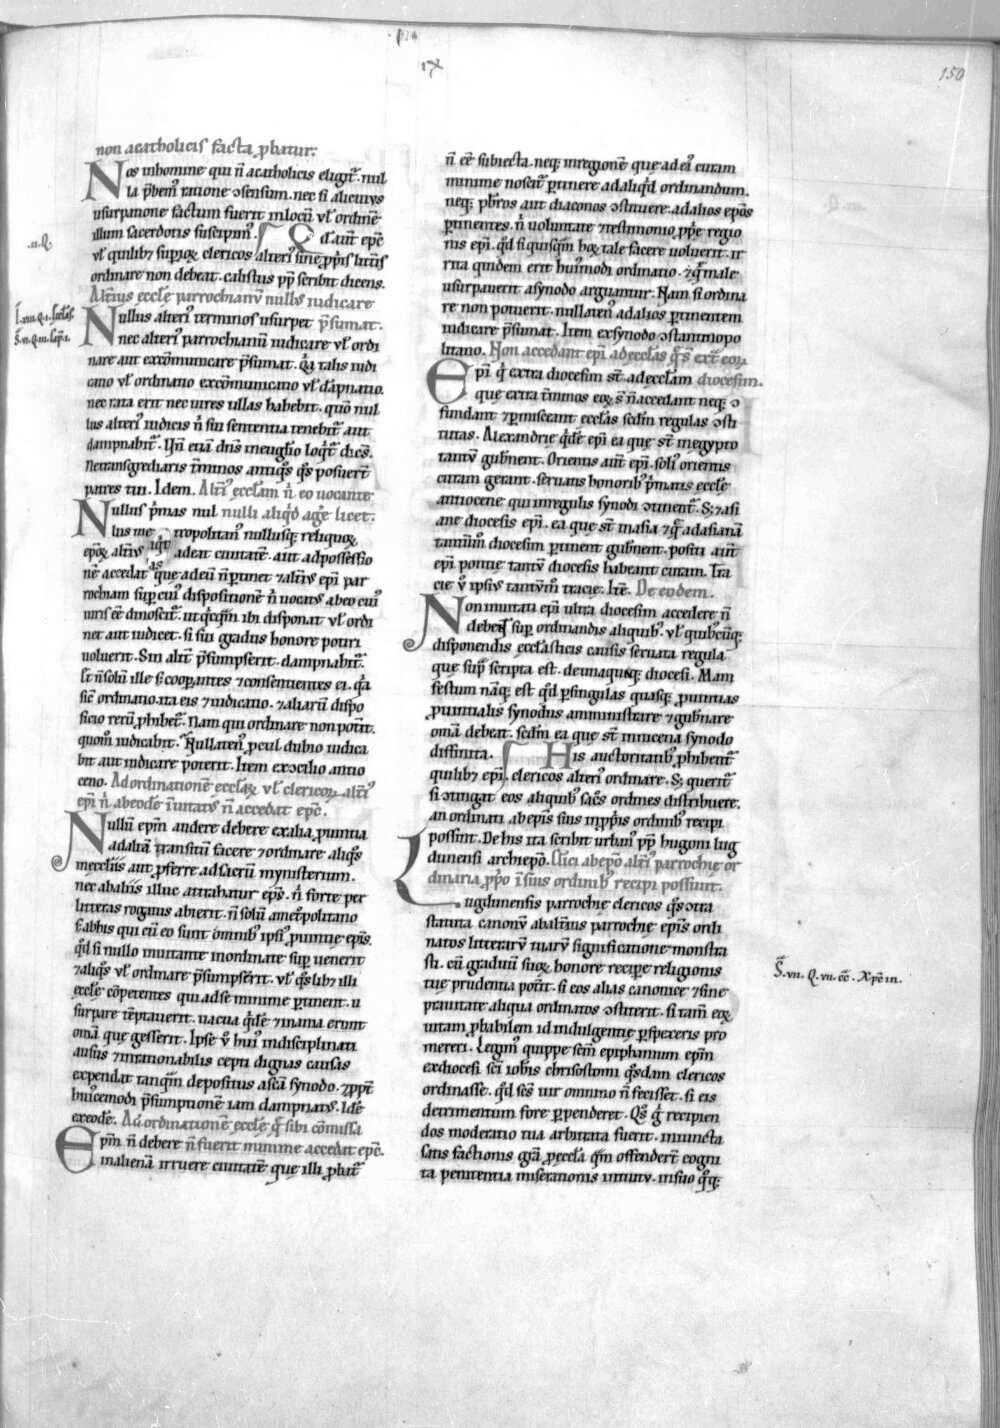 ıx
150
non acatholicis facta ꝓbatur.
Nos inhomine qui n̄ acatholicis eligit͛. nul
la p̄bem͛ ratione ↄsensum. nec si alicuius
usurpatione factum fuerit inlocū uł ordinē
illum sacerdotis suscipim͛. Qd̓ aut̄ ep̄c
.ıı.Q.
uł quilibꝫ supioꝝ clericos alteri͛ sine ꝓpiis litt̄is
ordinare non debeat. calistus pp̄ scribit dicens.
Alterius eccłe parrochianū nullus iudicare
Nullus alteri͛ terminos usurpet p̄sumat.
nec alteri͛ parrochianū iudicare uł ordi
nare aut excōmunicare p̄sumat. q̇a talis iudi
catio uł ordinatio excōmunicatio uł dāpnatio.
nec rata erit nec uires ullas habebit. quō nul
lus alteri͛ iudicis n̄ sui sententia tenebit͛ aut
dampnabit͛. Vn̄ etiā dn̄s ineuuḡlio loq̇t͛ dicēs.
Netransgrediaris t̓minos antiq̊s q̊s posuer̄t
patres tui. Idem. Alt̓i͛ eccłam n̄ eo uocante
Nullus p̓mas nul nulli aliq̇d age̓ licet.
lus me tropolitan͛ nullusq; reliquoꝝ
ep̄oꝝ alt̓ius adeat ciuitatē. aut adpossessio
nē accedat que adeū n̄ ꝑtinet ⁊alt̓ius ep̄i par
rochiam suꝑ cui͛ dispositionē n̄ uocatus abeo cui͛
iuris eē dinoscit͛. ut q̇cq̇m ibi disponat uł ordi
net aut iudicet. si sui gradus honore potiri
uoluerit. Sin alit̓ p̄sumpserit. dampnabit͛.
⁊ n̄ solū ille s; cooꝑantes ⁊consentientes ei. q̇a
sic̄ ordinatio. ita eis ⁊iudicatio. ⁊aliarū dispo
sitio rerū ꝓhibet͛. Nam qui ordinare non pot̓it.
quom͛ iudicabit. Nullaten͛ ꝓcul dubio iudica
bit aut iudicare poterit. Item exↄcilio antio
ceno. Ad ordinationē eccłaꝝ uł clericoꝝ alt̓i͛
ep̄i n̄ abeodē īuitatus n̄ accedat ep̄c.
Nullū ep̄m audere debere exalia ꝓuintia
adaliā transitū facere ⁊ordinare aliq̊s
mecclīis aut ꝓferre adsacrū mynisterium.
nec abaliis illuc attrahatur ep̄s. n̄ forte per
litteras rogatus abierit. n̄ solū ametꝓpolitano
s; abhis qui cū eo sunt omnib͛ ipsi͛ ꝓuintie ep̄is.
q̊d si nullo inuitante inordinate suꝑ uenerit
⁊aliq̊s uł ordinare p̄sumps̓erit. uł q̊slibꝫ illi
eccłe cōpetentes qui adse minime ꝑtinent. u
surpare tēptauerit. uacua q̇dē ⁊inania erunt
omā que gesserit. Ipse u̓ hui͛ indisciplinati
ausus ⁊irrationabilis cepti dignas causas
expendat tanq̇m depositus ascā synodo. ⁊ꝓpt̓
huiꝰcemodi p̄sumptionē iam dampnatus. Idē
exeodē. Ad ordinationē eccłe q̄ sibi cōmissa
Ep̄m n̄ debere n̄ fuerit minime accedat ep̄c.
inalienā irruere ciuitatē que illi ꝓbat͛
n̄ eē subiecta. neq; inregionē que ad ei͛ curam
minime noscit͛ ꝑtinere adaliq̇d ordinandum.
neq; pb̄ros aut diaconos ↄstituere. adalios ep̄os
ꝑtinentes. n̄ uoluntate ⁊testimonio ꝓpe regio
nis ep̄i. q̊d si quisq̇m hoꝝ tale facere uoluerit. ir
rita quidem erit hui͛modi ordinatio. ⁊q̇ male
usurpauerit asynodo arguantur. Nam si ordina
re non potuerit. nullaten͛ adalios ꝑtinentem
iudicare p̄sumat. Item exsynodo ↄstantinopo
litano. Non accedant ep̄i adeccłas q̄ s̄t ext̄ eoꝝ
Ep̄i q̇ extra diocesim st̄. adeccłam diocesim.
que extra t̓minos eoꝝ s̄ n̄ accedant neq; ↄ
fundant ⁊ꝑmisceant eccłas sc̄dm regulas ↄsti
tutas. Alexandrie q̇dē ep̄i ea que st̄ inegypto
tantū gub̓nent. Orientis aut̄ ep̄i. soli͛ orientis
curam gerant. seruatis honorib͛ p̓matis eccłe
antiocene qui inregulis synodi ↄtinent͛. S; ⁊asi
ane diocesis ep̄i. ea que st̄ inasia ⁊q̄ adasianā
tantūm diocesim ꝑtinent gub̓nent. positi aut̄
ep̄i pontie tantū diocesis habeant curam. Tra
cie u̓ ipsius tantūm tracie. Itē. De eodem.
Non inuitati ep̄i ultra diocesim accedere n̄
debent suꝑ ordinandis aliquib͛. uł quibcūq;
disponendis eccłasticis causis seruata regula
que sup̓ scripta est. deunaquaq; diocesi. Mani
festum nāq; est q̊d ꝑsingulas quasq; ꝓuintias
ꝓuintialis synodus amministrare ⁊gub̓nare
omā debeat. sc̄dm ea que st̄ innicena synodo
diffinita. His auctoritatib͛ ꝓhibent͛
quilibꝫ ep̄i. clericos alteri͛ ordinare. S; querit͛
si ↄtingat eos aliquib͛ sac̓s ordines distribuere.
an ordinati ab ep̄is suis inꝓpiis ordinib͛ recipi
possint. De his ita scribit urban͛ pp̄ hugoni lug
dunensi archiepō. Cłici abepō alt̓i͛ parrochie or
dinati aꝓpo ī suis ordinib͛ recipi possunt.
Lugdunensis parrochie clericos q̊s ↄtra
statuta canonū abalt̓ius parrochie ep̄is ordi
natos litterarū tuarū significatione monstra
sti. cū graduū suoꝝ honore recipe̓ religionis
tue prudentia pot̓it. si eos alias canonice ⁊sine
prauitate aliqua ordinatos ↄstiterit. si tam̄ eoꝝ
uitam ꝓbabilem id indulgentie ꝑspexeris pro
mereri. Legim͛ quippe sc̄m epiphanium ep̄m
exdiocesi sc̄i ioh̄is chrisostomi q̊sdam clericos
ordinasse. q̊d sc̄s uir omnino n̄ fecisset. si eis
detrimentum fore ꝑpenderet. Q̊s q̇ recipien
dos moderatio tua arbitrata fuerit. iniuncta
satis factionis gr̄a ꝓeccła q̇m offender̄t cogni
ta penitentia miserationis intuitu. insuo q̊q;
S̄.vıı.Q.vıı.cc̄.Xp̄eın.